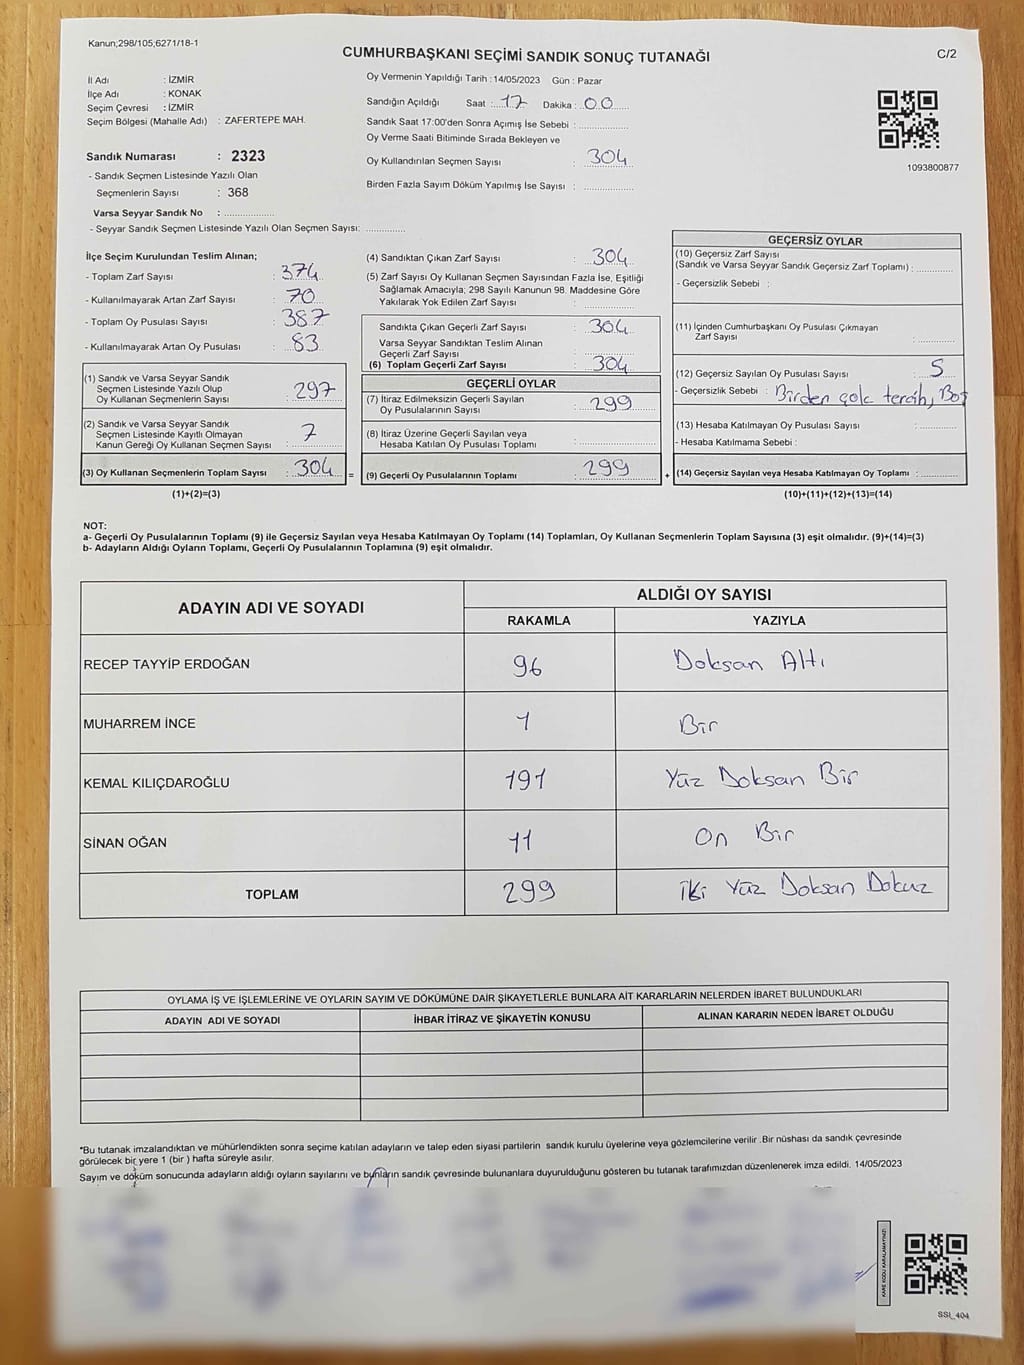 Kanun;298/105;6271/18-1
CUMHURBAŞKANI SEÇİMİ SANDIK SONUÇ TUTANAĞI
C/2
İl Adı : İZMİR
İlçe Adı : KONAK
Seçim Çevresi : İZMİR
Seçim Bölgesi (Mahalle Adı) : ZAFERTEPE MAH.
Sandık Numarası : 2323
- Sandık Seçmen Listesinde Yazılı Olan
Seçmenlerin Sayısı : 368
Varsa Seyyar Sandık No : ...................
- Seyyar Sandık Seçmen Listesinde Yazılı Olan Seçmen Sayısı: ..............
Oy Vermenin Yapıldığı Tarih :14/05/2023 Gün : Pazar
Sandığın Açıldığı Saat : 17 Dakika : 00
Sandık Saat 17:00'den Sonra Açımış İse Sebebi : ..................
Oy Verme Saati Bitiminde Sırada Bekleyen ve
Oy Kullandırılan Seçmen Sayısı : 304
Birden Fazla Sayım Döküm Yapılmış İse Sayısı : ..................
1093800877
İlçe Seçim Kurulundan Teslim Alınan;
- Toplam Zarf Sayısı : 374
- Kullanılmayarak Artan Zarf Sayısı : 70
- Toplam Oy Pusulası Sayısı : 387
- Kullanılmayarak Artan Oy Pusulası : 83
(1) Sandık ve Varsa Seyyar Sandık
Seçmen Listesinde Yazılı Olup
Oy Kullanan Seçmenlerin Sayısı : 297
(2) Sandık ve Varsa Seyyar Sandık
Seçmen Listesinde Kayıtlı Olmayan
Kanun Gereği Oy Kullanan Seçmen Sayısı : 7
(3) Oy Kullanan Seçmenlerin Toplam Sayısı : 304 =
(1)+(2)=(3)
(4) Sandıktan Çıkan Zarf Sayısı : 304
(5) Zarf Sayısı Oy Kullanan Seçmen Sayısından Fazla İse, Eşitliği
Sağlamak Amacıyla; 298 Sayılı Kanunun 98. Maddesine Göre
Yakılarak Yok Edilen Zarf Sayısı : ..................
Sandıkta Çıkan Geçerli Zarf Sayısı : 304
Varsa Seyyar Sandıktan Teslim Alınan
Geçerli Zarf Sayısı : ..................
(6) Toplam Geçerli Zarf Sayısı : 304
GEÇERLİ OYLAR
(7) İtiraz Edilmeksizin Geçerli Sayılan
Oy Pusulalarının Sayısı : 299
(8) İtiraz Üzerine Geçerli Sayılan veya
Hesaba Katılan Oy Pusulası Toplamı : ..................
(9) Geçerli Oy Pusulalarının Toplamı : 299 +
GEÇERSİZ OYLAR
(10) Geçersiz Zarf Sayısı
(Sandık ve Varsa Seyyar Sandık Geçersiz Zarf Toplamı) : .............
- Geçersizlik Sebebi :
(11) İçinden Cumhurbaşkanı Oy Pusulası Çıkmayan
Zarf Sayısı : .............
(12) Geçersiz Sayılan Oy Pusulası Sayısı : 5
- Geçersizlik Sebebi : Birden çok tercih, Boş
(13) Hesaba Katılmayan Oy Pusulası Sayısı : .............
- Hesaba Katılmama Sebebi :
(14) Geçersiz Sayılan veya Hesaba Katılmayan Oy Toplamı : .............
(10)+(11)+(12)+(13)=(14)
NOT:
a- Geçerli Oy Pusulalarının Toplamı (9) ile Geçersiz Sayılan veya Hesaba Katılmayan Oy Toplamı (14) Toplamları, Oy Kullanan Seçmenlerin Toplam Sayısına (3) eşit olmalıdır. (9)+(14)=(3)
b- Adayların Aldığı Oyların Toplamı, Geçerli Oy Pusulalarının Toplamına (9) eşit olmalıdır.
ADAYIN ADI VE SOYADI ALDIĞI OY SAYISI
RAKAMLA YAZIYLA
RECEP TAYYİP ERDOĞAN 96 Doksan Altı
MUHARREM İNCE 1 Bir
KEMAL KILIÇDAROĞLU 191 Yüz Doksan Bir
SİNAN OĞAN 11 On Bir
TOPLAM 299 İki Yüz Doksan Dokuz
OYLAMA İŞ VE İŞLEMLERİNE VE OYLARIN SAYIM VE DÖKÜMÜNE DAİR ŞİKAYETLERLE BUNLARA AİT KARARLARIN NELERDEN İBARET BULUNDUKLARI
ADAYIN ADI VE SOYADI İHBAR İTİRAZ VE ŞİKAYETİN KONUSU ALINAN KARARIN NEDEN İBARET OLDUĞU
*Bu tutanak imzalandıktan ve mühürlendikten sonra seçime katılan adayların ve talep eden siyasi partilerin sandık kurulu üyelerine veya gözlemcilerine verilir .Bir nüshası da sandık çevresinde
görülecek bir yere 1 (bir ) hafta süreyle asılır.
Sayım ve döküm sonucunda adayların aldığı oyların sayılarını ve bunların sandık çevresinde bulunanlara duyurulduğunu gösteren bu tutanak tarafımızdan düzenlenerek imza edildi. 14/05/2023
KARE KODU KARALAMAYINIZ!
SSI_404